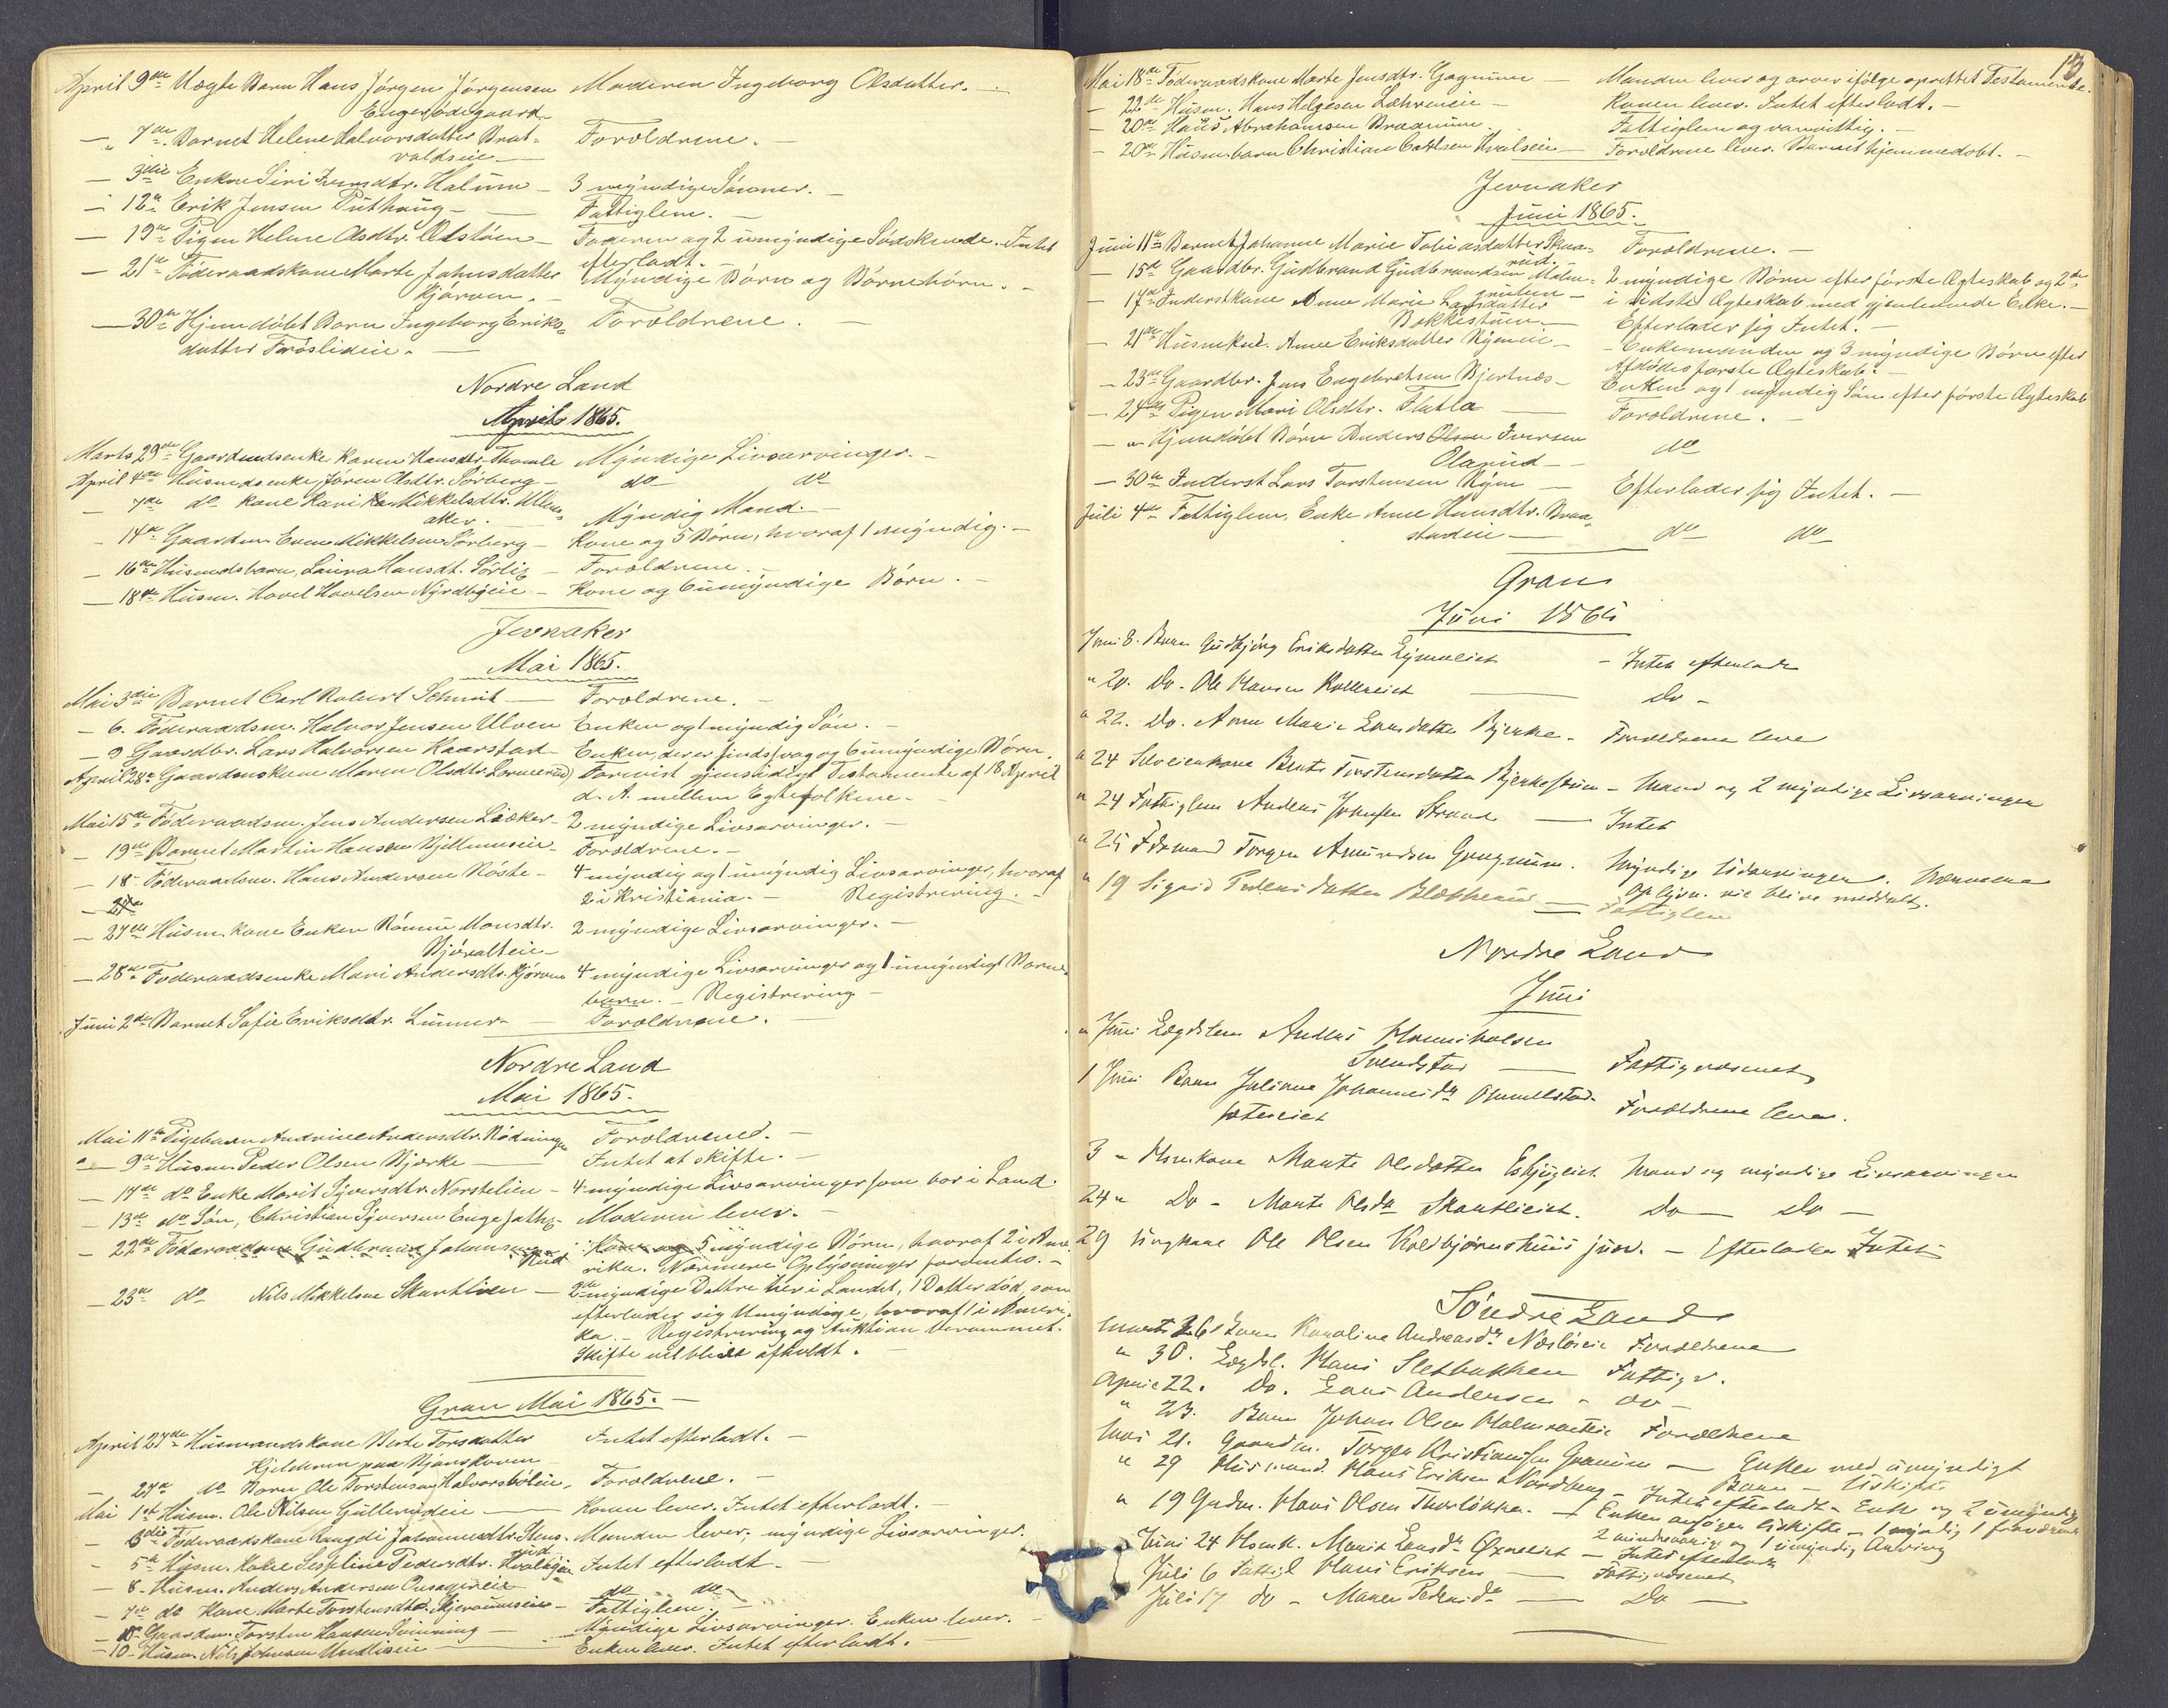 April 9de Uægte Barn Hans Jørgen Jørgensen Moderen Ingeborg Olsdatter. -
Enger ødegaard
- " 7de Barnet Helene Halvorsdatter Brat- Forældrene. -
valdseie. -
- 3die Enken Siri Iversdtr. Halum - 3 myndige Sønner. -
- 12te Erik Jensen Puthaug - Fattiglem. -
- 19de Pigen Helene Olsdtr. - Faderen og 2 umyndige Sødskende. Intet
efterladt. -
- 21de Føderaadskone Marte Johnsdatter Myndige Børn og Børnebørn. -
Kjørven. -
- 30te Hjemdøbt Barn Ingeborg Eriks- Forældrene. -
datter Frøslideie. -
Nordre Land
April 1865.
Marts 29de Gaardmdsenke Karen Hansdtr. Thomle Myndige Livsarvinger. -
April 4de Husmdsenke, Jøren Olsdtr. Sørberg - do do
- 7de do Kone Kari Mikkelsdtr. Ullens- Myndig Mand. -
aker. -
- 14de Gaardm. Even Mikkelsen Sørberg - Kone og 5 Børn, hvoraf 1 myndig. -
- 16de Husmdsbarn, Laura Hansdt. Sørlie - Forældrene. -
- 18de Husm. Hovel Hovelsen Nyrdbyeie - Kone og 6 umyndige Børn. -
Jevnaker
Mai 1865.
Mai 3die Barnet Carl Robert Schmit - Forældrene. -
- 6. Føderaadsm. Halvor Jensen Ulven Enken og 1 myndig Søn. -
- 9 Gaardbr. Lars Halvorsen Haarstad - Enken, der er sindssvag og 6 umyndige Børn.
April 28de Gaardmskone Maren Olsdtr. gjensidigt Testamente af 18 April
d. A. mellem Egtefolkene. -
Mai 15de Føderaadsm. Jens Andersen - 2 myndige Livsarvinger. -
- 19de Barnet Martin Hansen Forældrene. -
- 18 Føderaadsm. Hans Andersen Røste - 4 myndig og 1 umyndig Livsarvinger, hvoraf
- 27de 2 i Kristiania. - Registrering. -
- 27de Husm. kone Enken Monsdtr. 2 myndige Livsarvinger. -
Bjøralteie -
- 28de Føderaadsenke Mari Andersdtr. Kjørven 4 myndige Livsarvinger og 1 umyndigt Barne-
barn. - Registrering -
Juni 2de Barnet Sofie Eriksdtr. Lunner - Forældrene. -
Nordre Land
Mai 1865.
Mai 11te Pigebarn Andrine Andersdtr. Rødningen Forældrene. -
- 9de Husm. Peder Olsen Bjørke - Intet at skifte. -
- 14de do Enke Marit Syversdtr. Norstelien - 4 myndige Livsarvinger som bor i Land.
- 13de do Søn, Christian Syversen - Moderen lever. -
- 22de Føderaadsm. Gudbrand Johannesen Kone og 5 myndige Børn, hvoraf 2 i Ame-
Rud rika. Nærmere Oplysninger forventes. -
- 23de do Nils Mikkelsen Skartlien - 2de myndige Døttre her i Landet, 1 Datter død, som
efterlader sig Umyndige, hvoraf 1 i Ameri-
ka. - Registrering og Auktion berammet.
Skifte vil blive afholdt. -
Gran Mai 1865. -
April 27de Husmandskone Berte Torsdatter Intet efterladt. -
Hjelderen paa
- 27de do Barn Ole Torstensen Halvorsbøleie, Forældrene. -
Mai 1ste Husm. Ole Nilsen Gullerudeie - Konen lever. Intet efterladt. -
- 3die Føderaadskone Rangdi Johannesdtr. Stens- Manden lever, myndige Livsarvinger.
rud
- 5te Husm. Kone Pedersdtr. Intet efterladt -
- 8 - Husm. Anders Andersen do do
- 7de do Kone Marte Torstensdtr. - Fattiglem. -
- 10de Gaardm. Torsten Hansen - Myndige Livsarvinger. Enken lever. -
- 10 - Husm. Nils Johnsen - Enken lever. Intet efterladt. -
13
Mai 18de Føderaadskone Marte Jensdtr. Gagnum - Manden lever og arver ifølge oprettet Testamente.
- 22de Husm. Hans Helgesen - Konen lever. Intet efterladt. -
- 20de Hans Abrahamsen Braanum Fattiglem og vanvittig. -
- 20de Husm. barn Christian Carlsen Hvalseie - Forældrene lever. Barnet hjemmedøbt. -
Jevnaker
Juni 1865.
Juni 11te Barnet Johanne Marie Tobiasdatter Forældrene. -
rud.
- 15de Gaardbr. Gudbrand Gudbrandsen 2 myndige Børn efter første Egteskab og 2de
- 17de Inderstkone Anne Marie Larsdatter i sidste Egteskab med gjenlevende Enke. -
Bakkestuen - Efterlader sig Intet. -
- 21de Husmkone. Anne Eriksdatter - Enkemanden og 3 myndige Børn efter
Afdødes første Egteskab. -
- 23de Gaardbr. Jens Engebretsen Bjertnæs - Enken og 1 myndig Søn efter første Egteskab
- 27de Pigen Mari Olsdtr. Flatla Forældrene. -
- " Hjemdøbt Barn Anders Olsen Iversen do
Olarud -
- 30te Inderst Lars Torstensen - Efterlader sig Intet. -
Juli 4de Fattiglem, Enke Anne Hansdtr. Braa-
stadeie - do do
Gran
Juni 1865
Juni 8. Barn Gudbjørg Eriksdatter - Intet efterladt
" 20. Do. Ole Hansen - Do -
" 22. Do. Anne Marie Larsdatter Bjerke - Forældrene leve
" 24 Selveierkone Berte Torstensdatter Bjerkestuen - Mand og 2 myndige Livsarvinger
" 24 Fattiglem Anders Johnsen Strand - Intet
" 25 Fdrmand Torger Amundsen. Myndige Udarvinger. Nærmere
Oplysn. vil blive meddelt.
" 19 Sigrid Pedersdatter - Fattiglem
Nordre Land
Juni
" Juni Lægdslem Anders
Svendstad - Fattigvæsenet
1 Juni Barn Juliane Johannesdtr. Forældrene leve.
sætereiet
3 " Hsmkone Marte Olsdatter Mand og myndige Livsarvinger
24 " Do - Marte Olsdtr. Skartlieiet. Do - Do -
29 Ungkarl Ole Olsen Kolbjørnshuus junr. - Efterlader Intet
Søndre Land
Marts 26 Barn Karoline Andreasdtr. Forældrene
" 30. Lægdsl. Hans Sletbakken Fattigv.
April 22. Do. Lars Andersen - Do -
" 23. Barn Johan Olsen Forældrene
Mai 21. Gaardm. Torger Kristiansen Granum - Enken med umyndigt
Barn - Uskifte
" 29 Husmand. Hans Eriksen Nordberg - Intet efterladt - Enke og 2 umyndige
" 19 Grdm. Hans Olsen. - Enken ansøger Uskifte - 1 myndig 1
2 mindreaarige og 1 umyndig Arving
Juni 24 Hsmk. Marit Larsdtr. - Intet efterladt
Juli 6 Fattigl Hans Eriksen - Fattigvæsenet
Juli 17 do - Maren Pedersdtr. - Do -